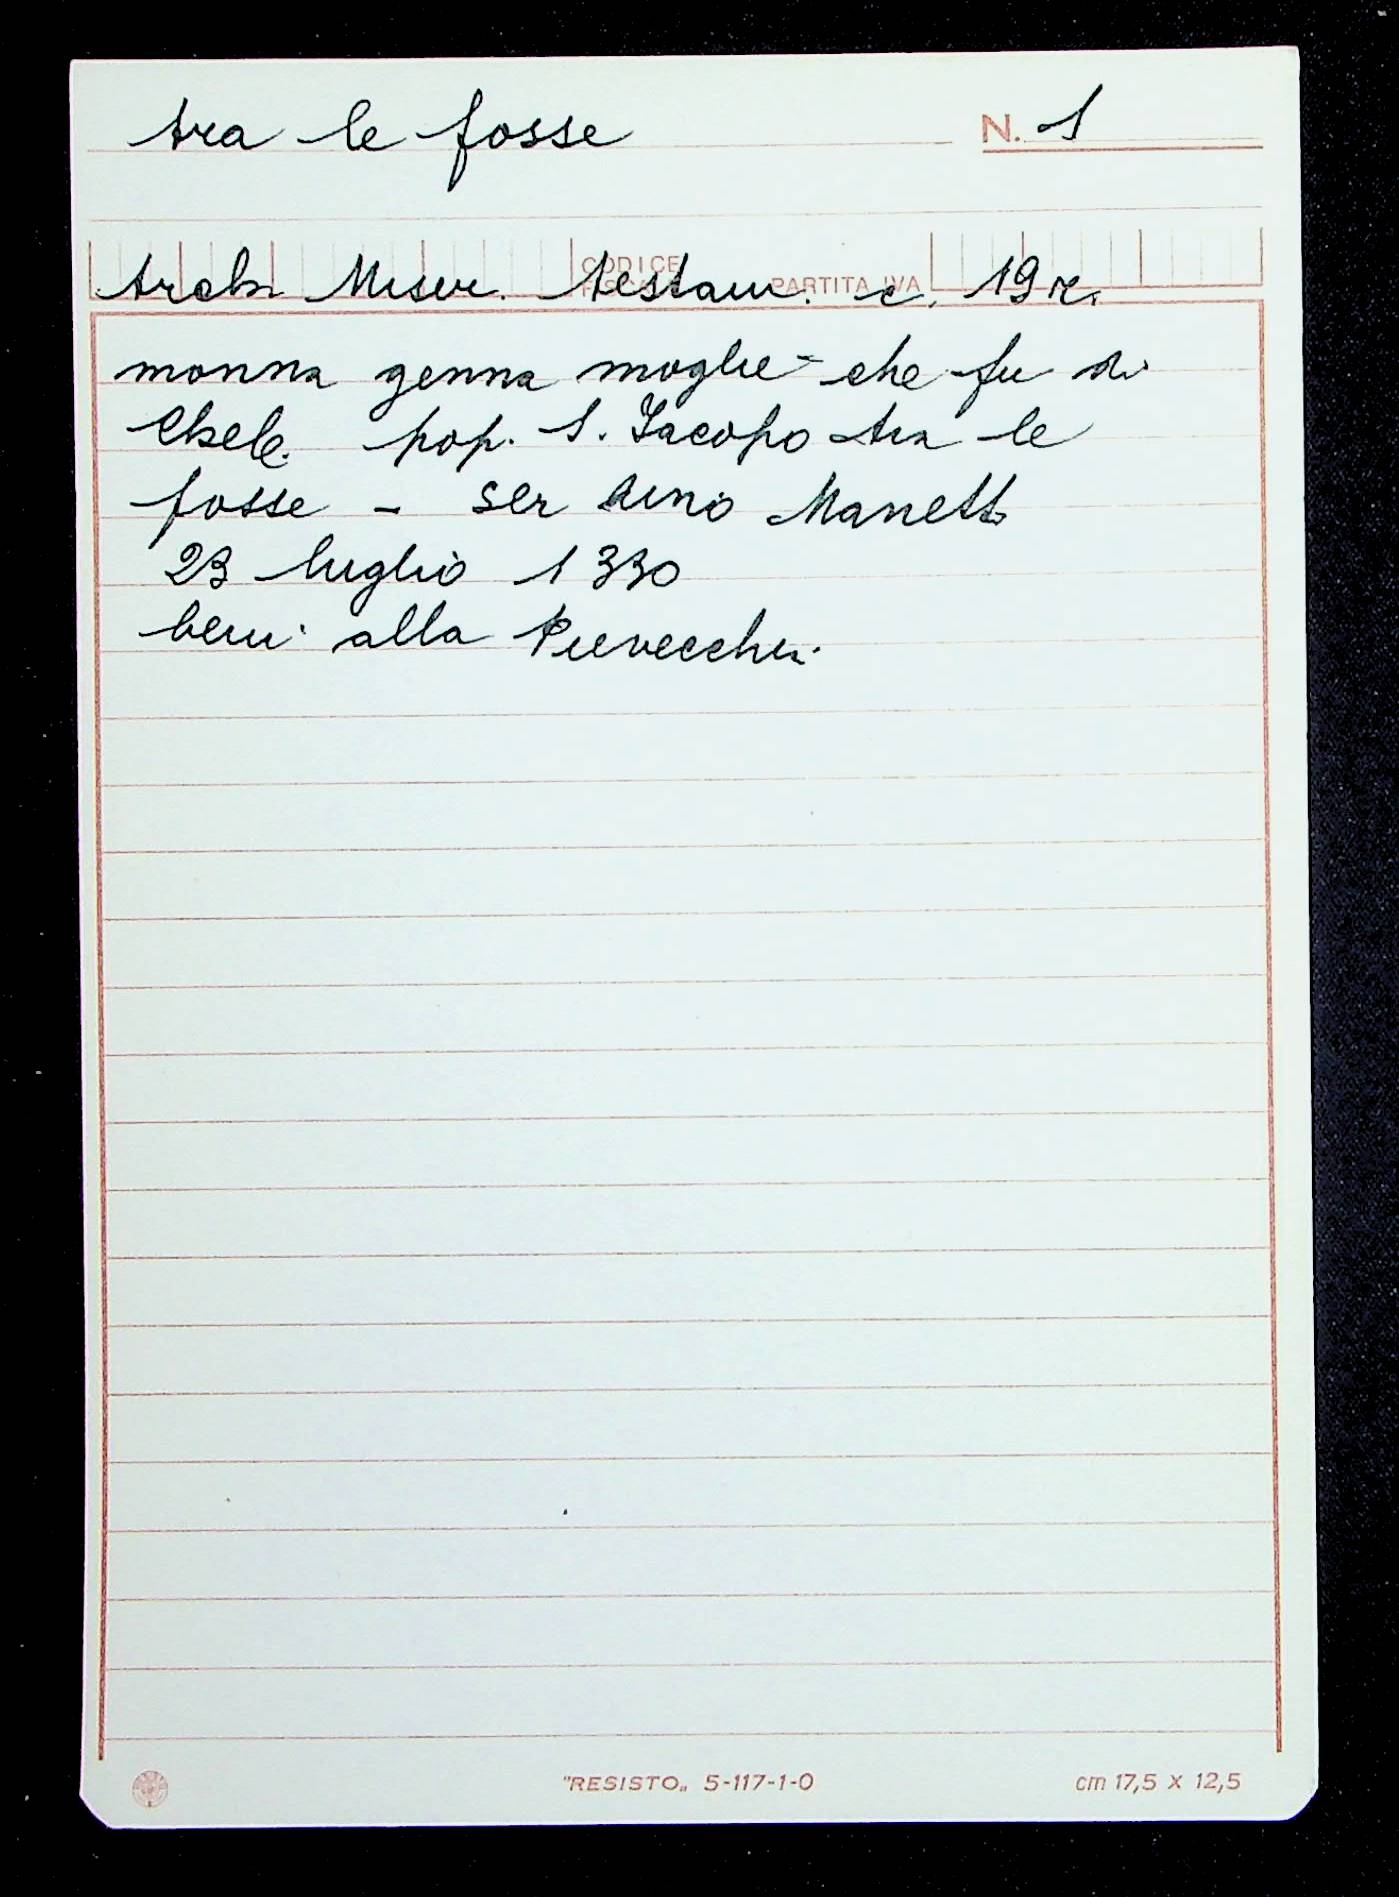 tra le fosse N. 1
CODICE FISCALE PARTITA IVA
Arch. Miser. Testam. c. 19 r.
monna genna moglie che fu di
Chele pop. S. Iacopo tra le
fosse - ser Manetti
23 luglio 1330
beni alla Pievecchia
"RESISTO" 5-117-1-0 cm 17,5 x 12,5